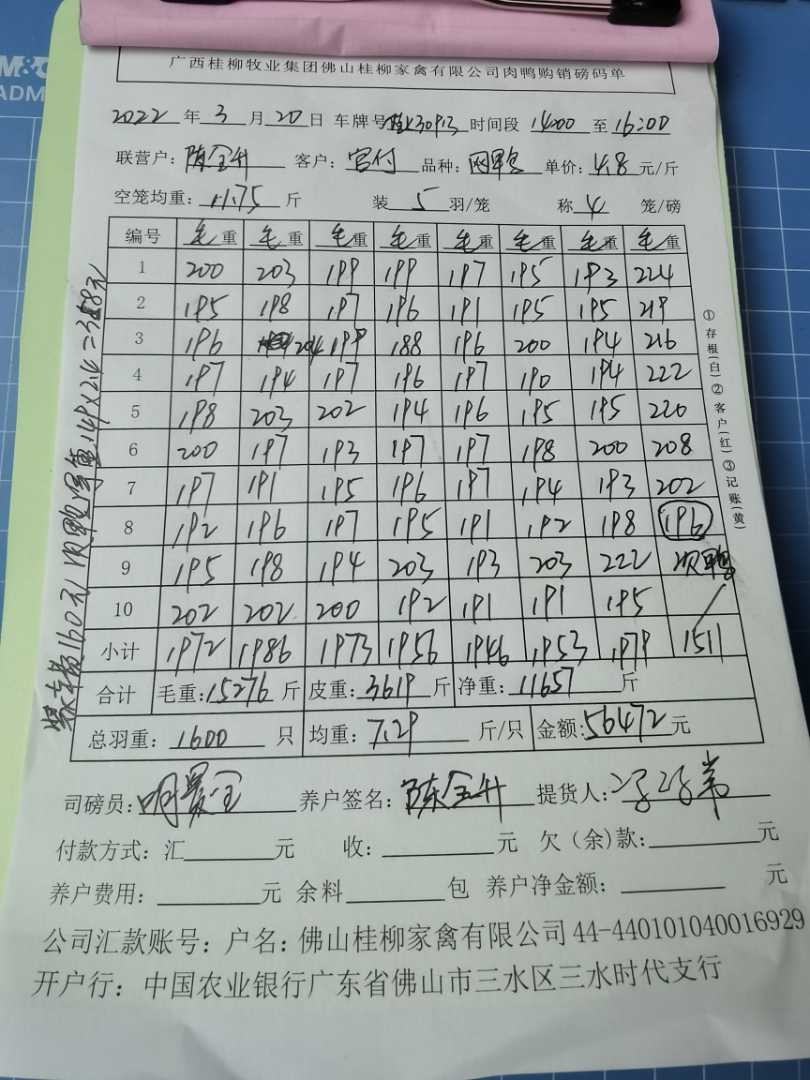 M&G
ADM
广西桂柳牧业集团佛山桂柳家禽有限公司肉鸭购销磅码单
2022 年 3 月 20 日 车牌号 30913 时间段 1400 至 16:00
联营户: 陈全升 客户: 宫付 品种: 网鸭 单价: 4.8 元/斤
空笼均重: 11.75 斤 装 5 羽/笼 称 4 笼/磅
编号 毛重 毛重 毛重 毛重 毛重 毛重 毛重 毛重
1 200 203 199 199 197 195 193 224
2 195 198 197 196 191 195 195 219
3 196 204 199 188 196 200 194 216
4 197 194 197 196 197 190 194 222
5 198 203 202 194 196 195 195 220
6 200 197 193 197 197 198 200 208
7 197 191 195 196 197 194 193 202
8 192 196 197 195 191 192 198 196
9 195 198 194 203 193 203 222 次鸭
10 202 202 200 192 191 191 195
小计 1972 1986 1973 1956 1946 1953 1979 1511
合计 毛重: 15276 斤 皮重: 3619 斤 净重: 11657 斤
总羽重: 1600 只 均重: 7.29 斤/只 金额: 56472 元
司磅员: 养户签名: 陈全升 提货人:
付款方式: 汇 元 收: 元 欠(余)款: 元
养户费用: 元 余料 包 养户净金额: 元
公司汇款账号: 户名: 佛山桂柳家禽有限公司 44-440101040016929
开户行: 中国农业银行广东省佛山市三水区三水时代支行
①存根(白)②客户(红)③记账(黄)
160元 次鸭净重149×2.4=358元